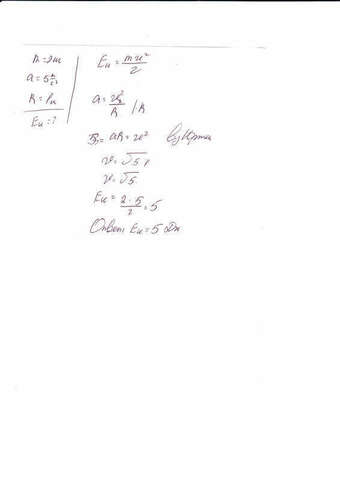 a = 5 м/с²
R = 1м
Eк = ?
Eк = mv²/2
a = v²/R / R
aR = v²
v = √5
Eк = 2·5/2 = 5
Ответ Eк = 5 Дж